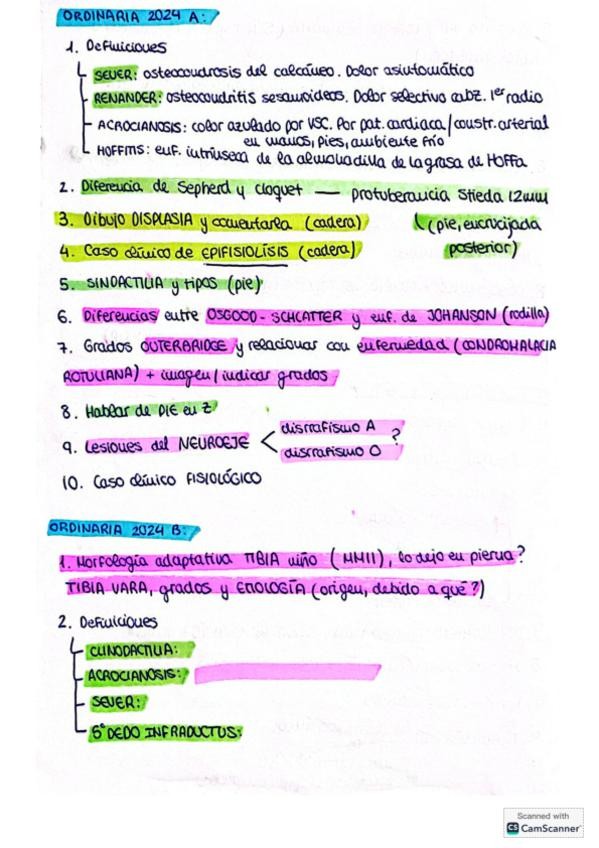 ORDINARIA 2024 A:
1. Definiciones
SEVER: osteocondrosis del calcáneo. Dolor asintomático
RENANDER: osteocondritis sesamoideos. Dolor selectivo cabz. 1er radio
- ACROCIANOSIS: color azulado por VSC. Por pat. cardiaca / constr. arterial
en manos, pies, ambiente frío
HOFFITIS: enf. intrínseca de la almohadilla de la grasa de Hoffa.
2. Diferencia de Sepherd y cloquet — protuberancia Stieda 12mm
3. Dibujo DISPLASIA y comentarla (cadera) (pie, encrucijada
4. Caso clínico de EPIFISIOLÍSIS (cadera) posterior)
5. SINDACTILIA y tipos (pie)
6. Diferencias entre OSGOOD-SCHLATTER y enf. de JOHANSON (rodilla)
7. Grados OUTERBRIDGE y relacionar con enfermedad (CONDROMALACIA
ROTULIANA) + imagen / indicar grados
8. Hablar de PIE en Z
9. Lesiones del NEUROEJE < disrrafismo A
disrrafismo O ?
10. Caso clínico FISIOLÓGICO
ORDINARIA 2024 B:
1. Morfología adaptativa TIBIA niño (MMII), lo dejo en pierna?
TIBIA VARA, grados y ETIOLOGÍA (origen, debido a qué?)
2. Definiciones
CLINODACTILIA:
ACROCIANOSIS:
SEVER:
5º DEDO INFRADUCTUS:
Scanned with
CS CamScanner